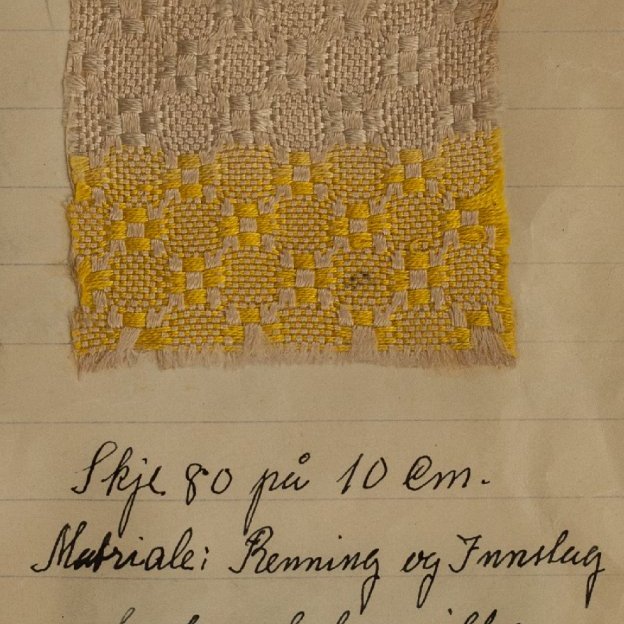 Skje 80 på 10 Cm.
Matriale: Renning og Innslag